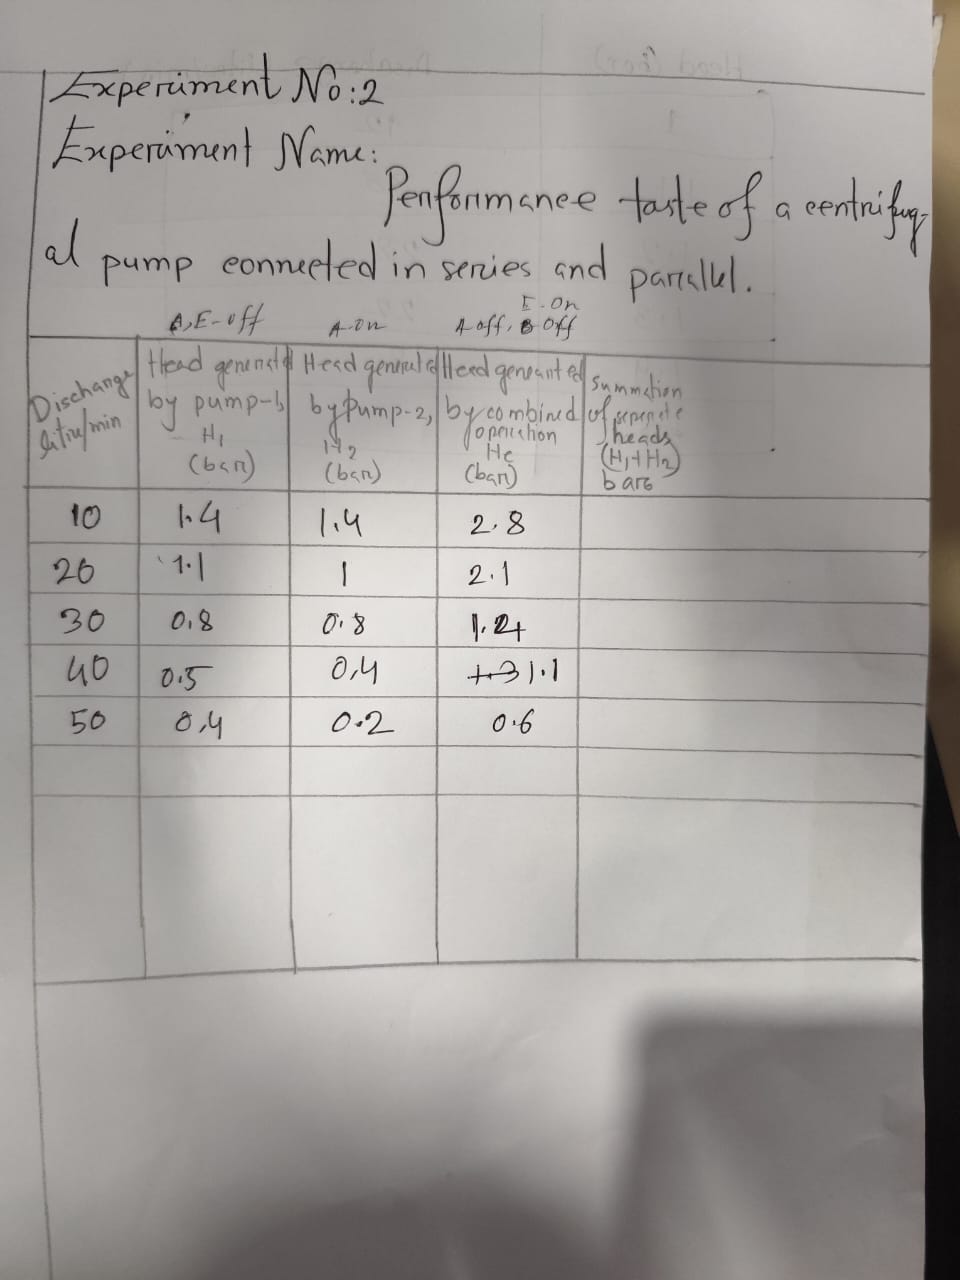 Experiment No:2
Experiment Name:
Performance taste of a centrifug-
al pump connected in series and parallel.
A,E-off A-on A off, B off E-On
Discharge litre/min Head generated by pump-1, H1 (bar) Head generated by Pump-2, H2 (bar) Head genranted by combined operation Hc (bar) Summation of seperate heads (H1+H2) bars
10 1.4 1.4 2.8
20 1.1 1 2.1
30 0.8 0.8
40 0.5 0.4 1.1
50 0.4 0.2 0.6